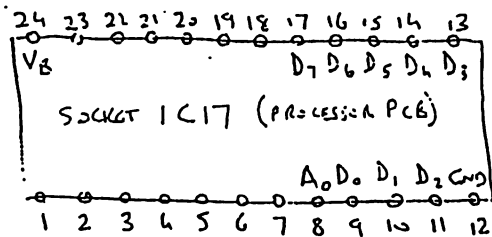 24 23 22 21 20 19 18 17 16 15 14 13
VB D7 D6 D5 D4 D3
SOCKET IC17 (PROCESSOR PCB)
A0 D0 D1 D2 GND
1 2 3 4 5 6 7 8 9 10 11 12